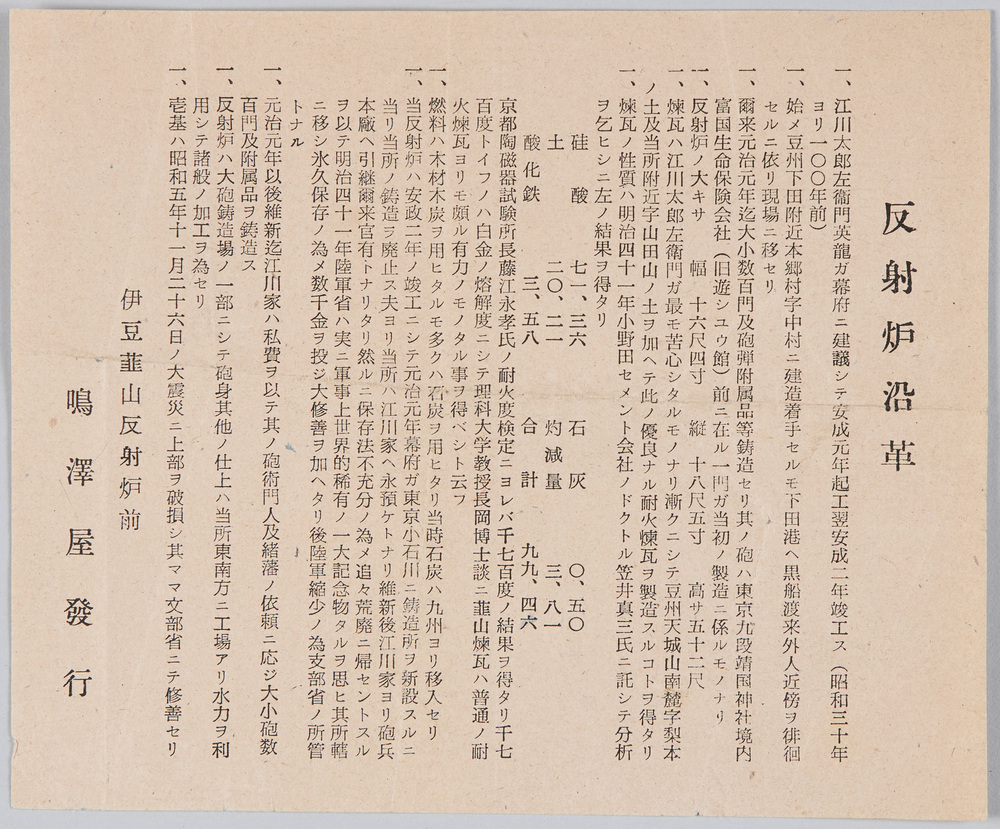 反射炉沿革
一、江川太郎左衛門英龍ガ幕府ニ建議シテ安成元年起工翌安成二年竣工ス（昭和三十年
ヨリ一〇〇年前）
一、始メ豆州下田附近本郷村字中村ニ建造着手セルモ下田港ヘ黒船渡来外人近傍ヲ徘徊
セルニ依リ現場ニ移セリ
一、爾来元治元年迄大小数百門及砲弾附属品等鋳造セリ其ノ砲ハ東京九段靖国神社境内
富国生命保険会社（旧遊シユウ館）前ニ在ル一門ガ当初ノ製造ニ係ルモノナリ
一、反射炉ノ大キサ　幅　十六尺四寸　縦　十八尺五寸　高サ五十二尺
一、煉瓦ハ江川太郎左衛門ガ最モ苦心シタルモノナリ漸クニシテ豆州天城山南麓字梨本
ノ土及当所附近字山田山ノ土ヲ加ヘテ此ノ優良ナル耐火煉瓦ヲ製造スルコトヲ得タリ
一、煉瓦ノ性質ハ明治四十一年小野田セメント会社ノドクトル笠井真三氏ニ託シテ分析
ヲ乞ヒシニ左ノ結果ヲ得タリ
硅酸　七一、三六　石灰　〇、五〇
土　二〇、二一　灼減量　三、八一
酸化鉄　三、五八　合計　九九、四六
京都陶磁器試験所長藤江永孝氏ノ耐火度検定ニヨレバ千七百度ノ結果ヲ得タリ千七
百度トイフノハ白金ノ熔解度ニシテ理科大学教授長岡博士談ニ韮山煉瓦ハ普通ノ耐
火煉瓦ヨリモ頗ル有力ノモノタル事ヲ得ベシト云フ
一、燃料ハ木材木炭ヲ用ヒタルモ多クハ石炭ヲ用ヒタリ当時石炭ハ九州ヨリ移入セリ
一、当反射炉ハ安政二年ノ竣工ニシテ元治元年幕府ガ東京小石川ニ鋳造所ヲ新設スルニ
当リ当所ノ鋳造ヲ廃止ス夫ヨリ当所ハ江川家ヘ永預ケトナリ維新後江川家ヨリ砲兵
本廠ヘ引継爾来官有トナリタリ然ルニ保存法不充分ノ為メ追々荒廃ニ帰セントスル
ヲ以テ明治四十一年陸軍省ハ実ニ軍事上世界的稀有ノ一大記念物タルヲ思ヒ其所轄
ニ移シ氷久保存ノ為メ数千金ヲ投ジ大修善ヲ加ヘタリ後陸軍縮少ノ為支部省ノ所管
トナル
一、元治元年以後維新迄江川家ハ私費ヲ以テ其ノ砲術門人及緒藩ノ依頼ニ応ジ大小砲数
百門及附属品ヲ鋳造ス
一、反射炉ハ大砲鋳造場ノ一部ニシテ砲身其他ノ仕上ハ当所東南方ニ工場アリ水力ヲ利
用シテ諸般ノ加工ヲ為セリ
一、壱基ハ昭和五年十一月二十六日ノ大震災ニ上部ヲ破損シ其ママ文部省ニテ修善セリ
伊豆韮山反射炉前
鳴澤屋發行